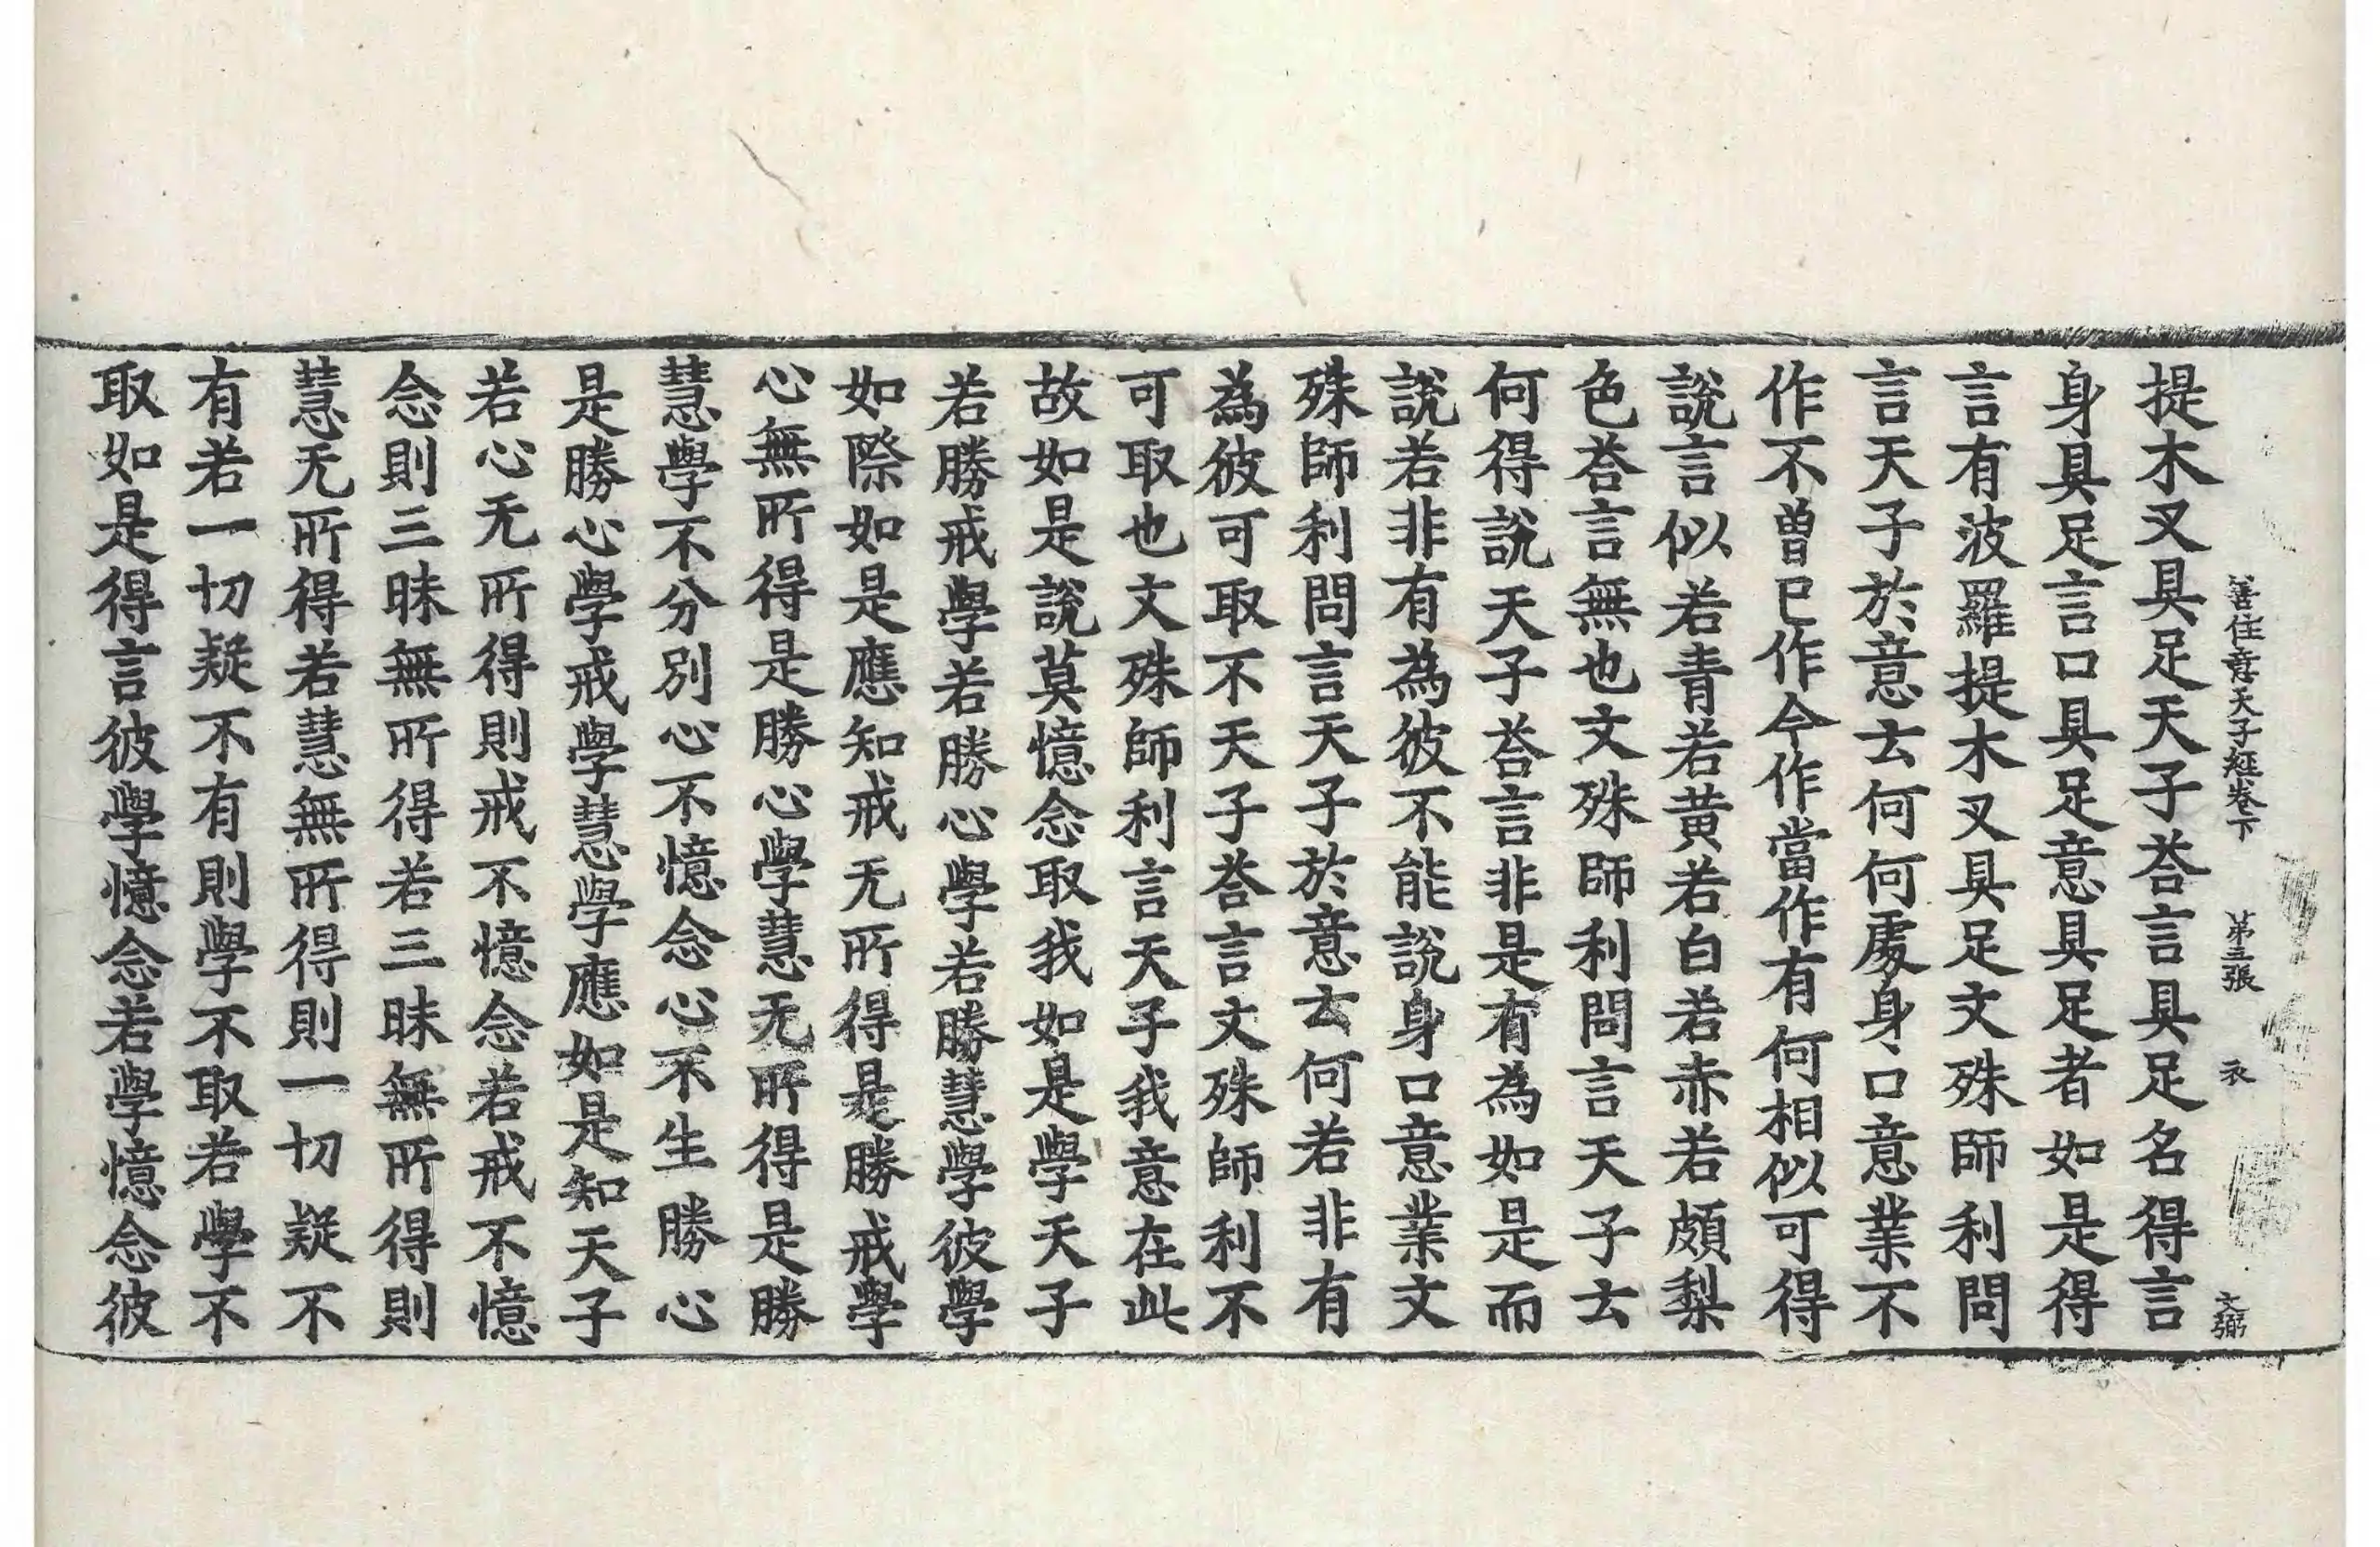 善住意天子経卷下 第三張 衣 文弼
提木叉具足天子荅言具足名得言
身具足言口具足意具足者如是得
言有波羅提木叉具足文殊師利問
言天子於意云何何處身口意業不
作不曾已作今作當作有何相似可得
說言似若青若黃若白若赤若頗梨
色荅言無也文殊師利問言天子云
何得說天子荅言非是有為如是而
說若非有為彼不能說身口意業文
殊師利問言天子於意云何若非有
為彼可取不天子荅言文殊師利不
可取也文殊師利言天子我意在此
故如是說莫憶念取我如是學天子
若勝戒學若勝心學若勝慧學彼學
如際如是應知戒无所得是勝戒學
心無所得是勝心學慧无所得是勝
慧學不分別心不憶念心不生勝心
是勝心學戒學慧學應如是知天子
若心无所得則戒不憶念若戒不憶
念則三昧無所得若三昧無所得則
慧无所得若慧無所得則一切疑不
有若一切疑不有則學不取若學不
取如是得言彼學憶念若學憶念彼